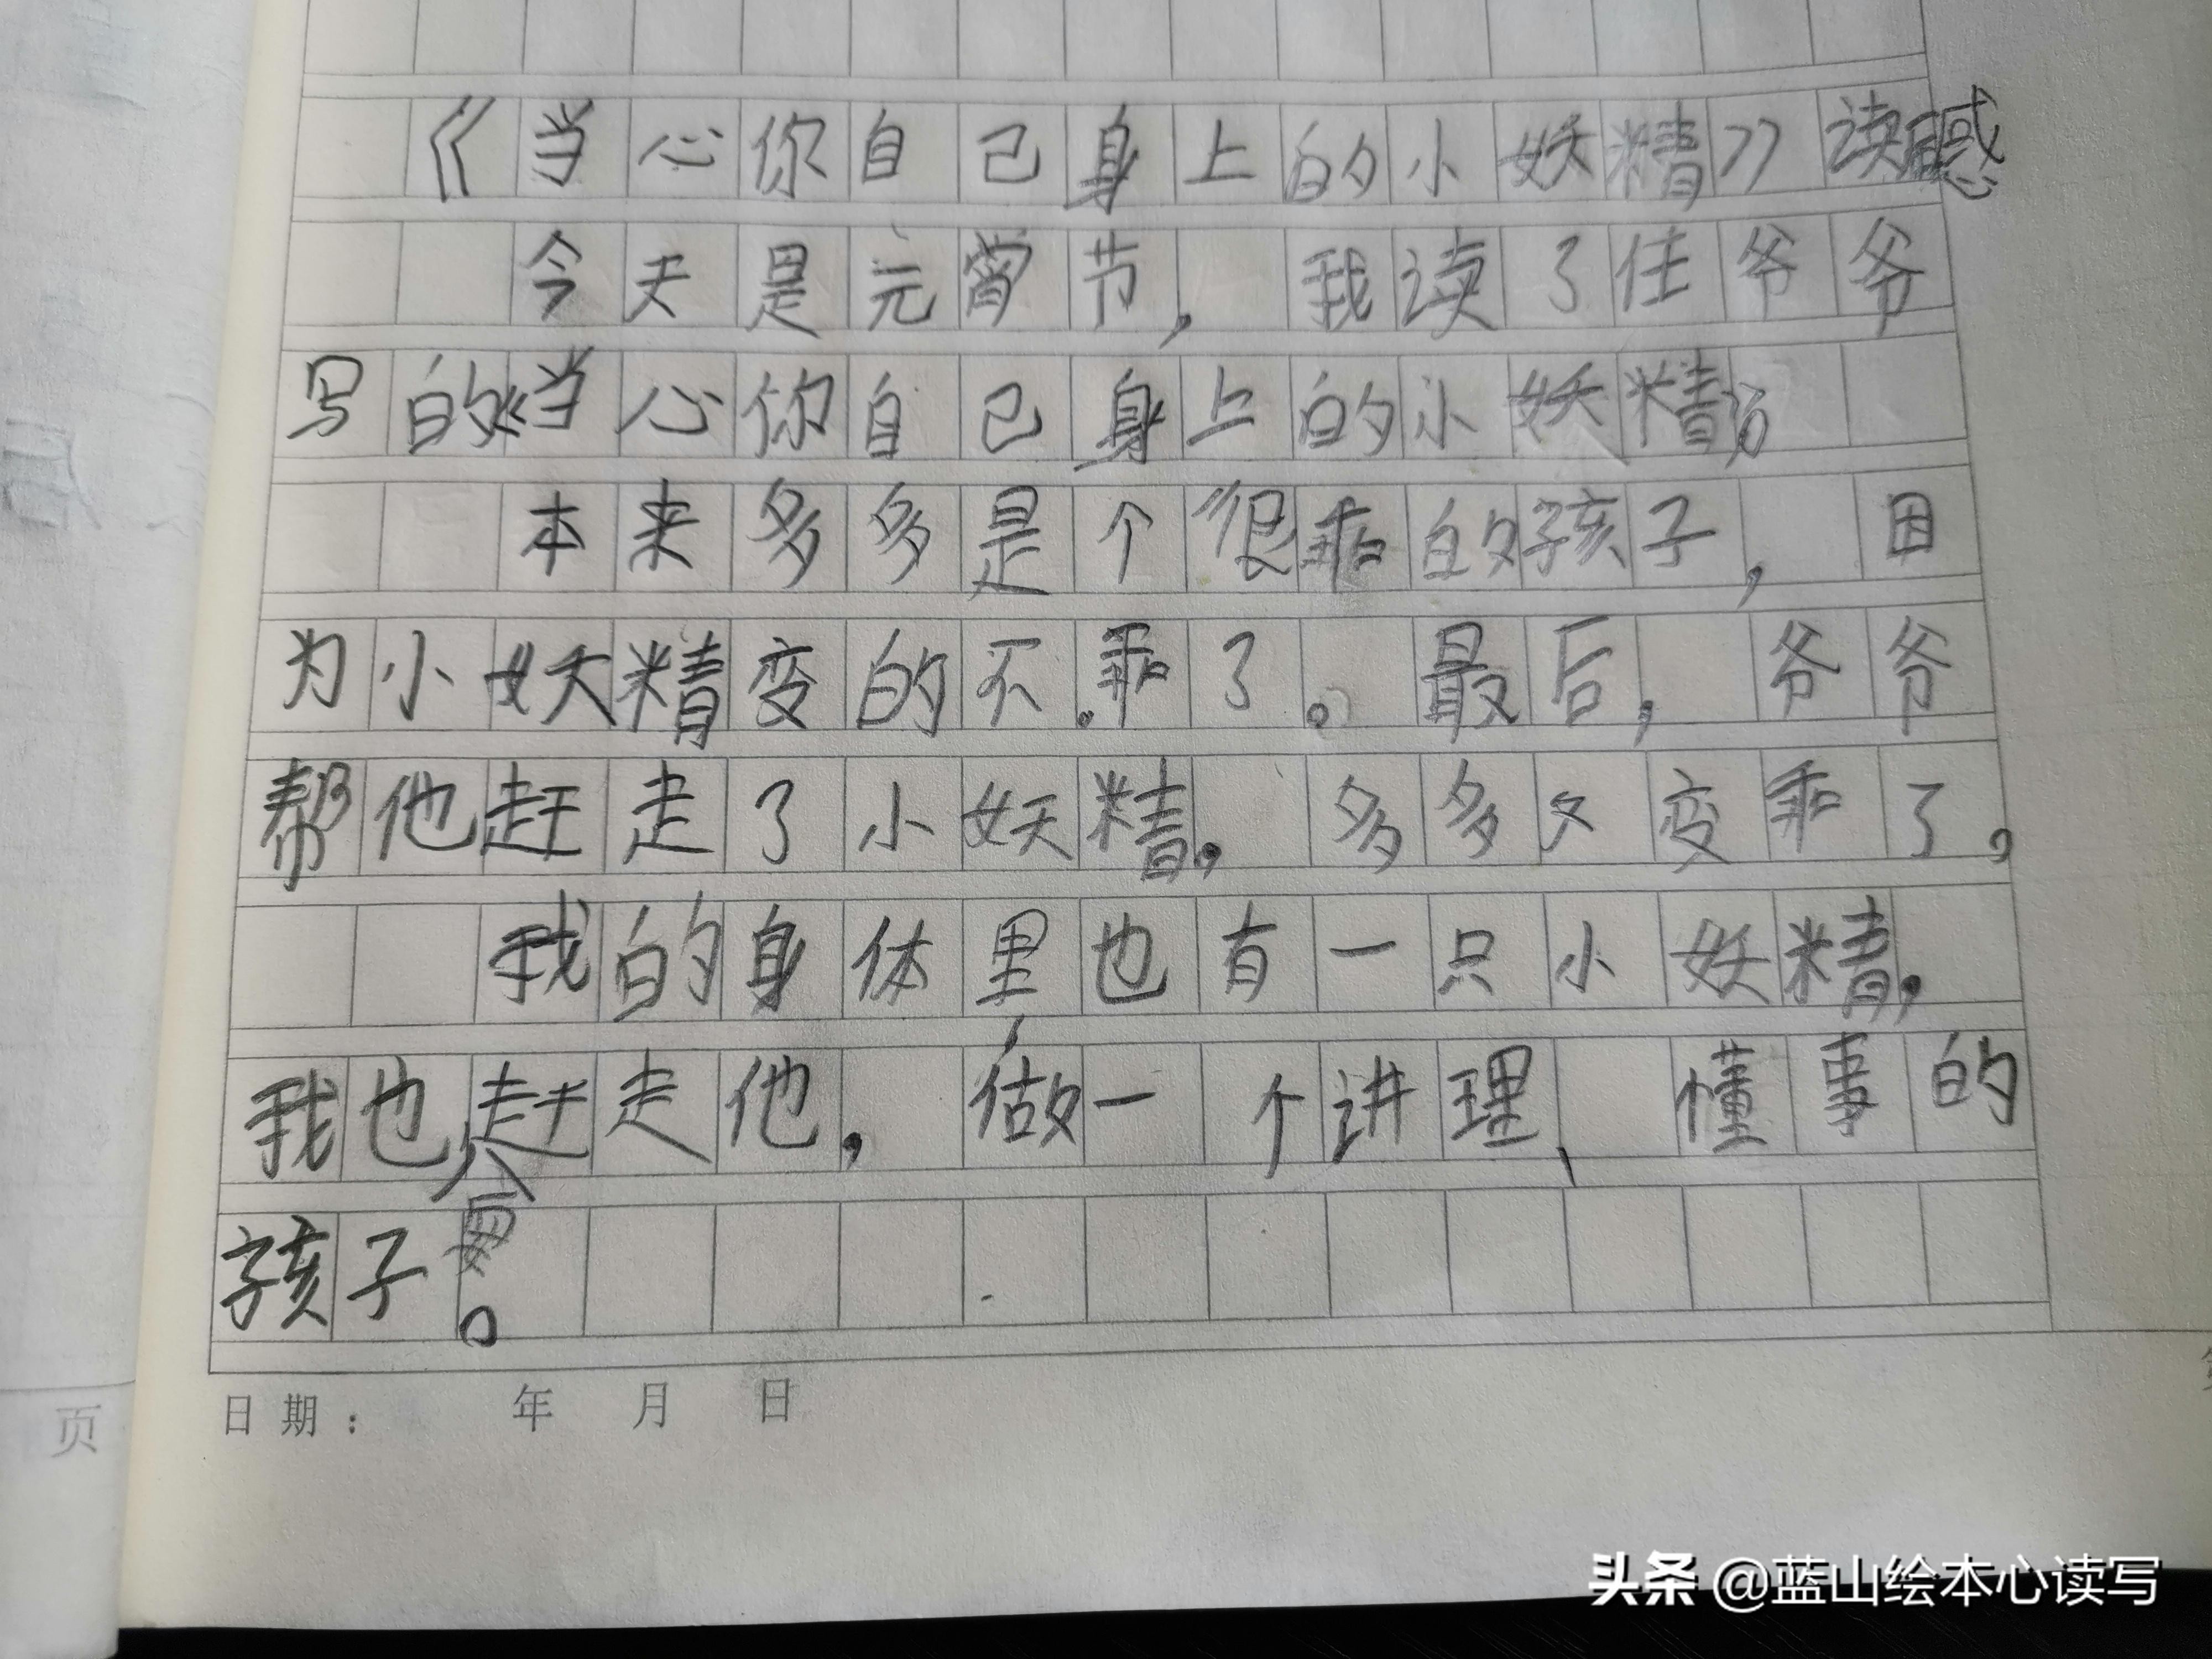 《当心你自己身上的小妖精》读后感
今天是元宵节，我读了任爷爷
写的《当心你自己身上的小妖精》。
本来多多是个很乖的孩子，因
为小妖精变的不乖了。最后，爷爷
帮他赶走了小妖精。多多又变乖了。
我的身体里也有一只小妖精，
我也要赶走他，做一个讲理、懂事的
孩子。
日期： 年 月 日
页
头条 @蓝山绘本心读写